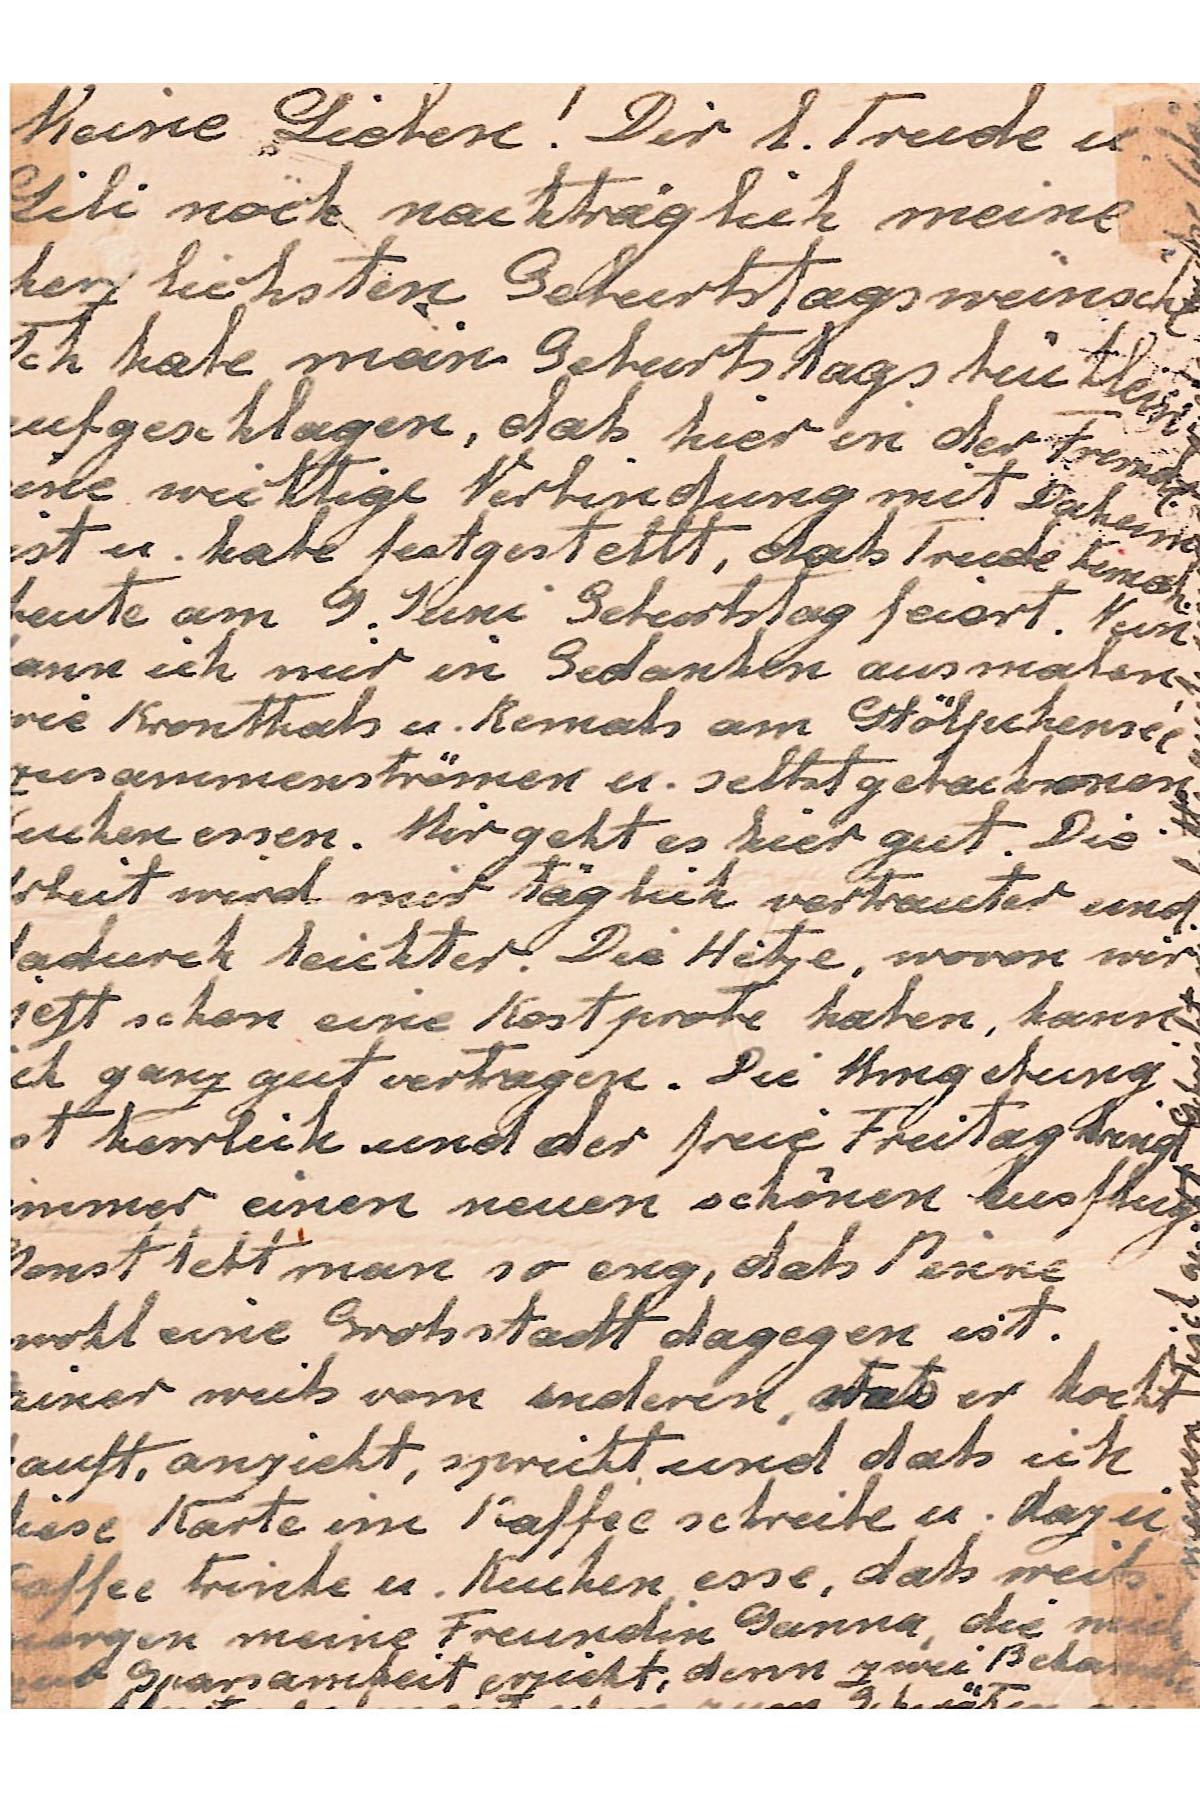 Meine Lieben! Dir l. Trude u
Lili noch nachträglich meine
herzlichsten Geburtstagswünsche
Ich habe mein Geburtstagsbüchlein
aufgeschlagen, dahs hier in der Fremde
eine wichtige Verbindung mit Daheim
ist u. habe festgestellt, dahs Trude
heute am 9. Juni Geburtstag feiert. Nun
kann ich mir in Gedanken ausmalen,
wie Kronthals u. Remaks am Stölpchensee
zusammenströmen u. selbstgebackenen
Kuchen essen. Mir geht es hier gut. Die
Arbeit wird mir täglich vertrauter und
dadurch leichter. Die Hitze, wovon wir
jetzt schon eine Kostprobe haben, kann
ich ganz gut vertragen. Die Umgebung
ist herrlich und der freie Freitag bringt
immer einen neuen schönen Ausflug.
Sonst lebt man so eng, dahs Peine
wohl eine Grohsstadt dagegen ist.
Einer weihs vom anderen, er kocht
kauft, anzieht, spricht und dahs ich
diese Karte im Kaffee schreibe u. dazu
Kaffee trinke u. Kuchen esse, dahs weihs
morgen meine Freundin Hanna, die mich
zur Sparsamkeit erzieht, denn zwei Bekannte